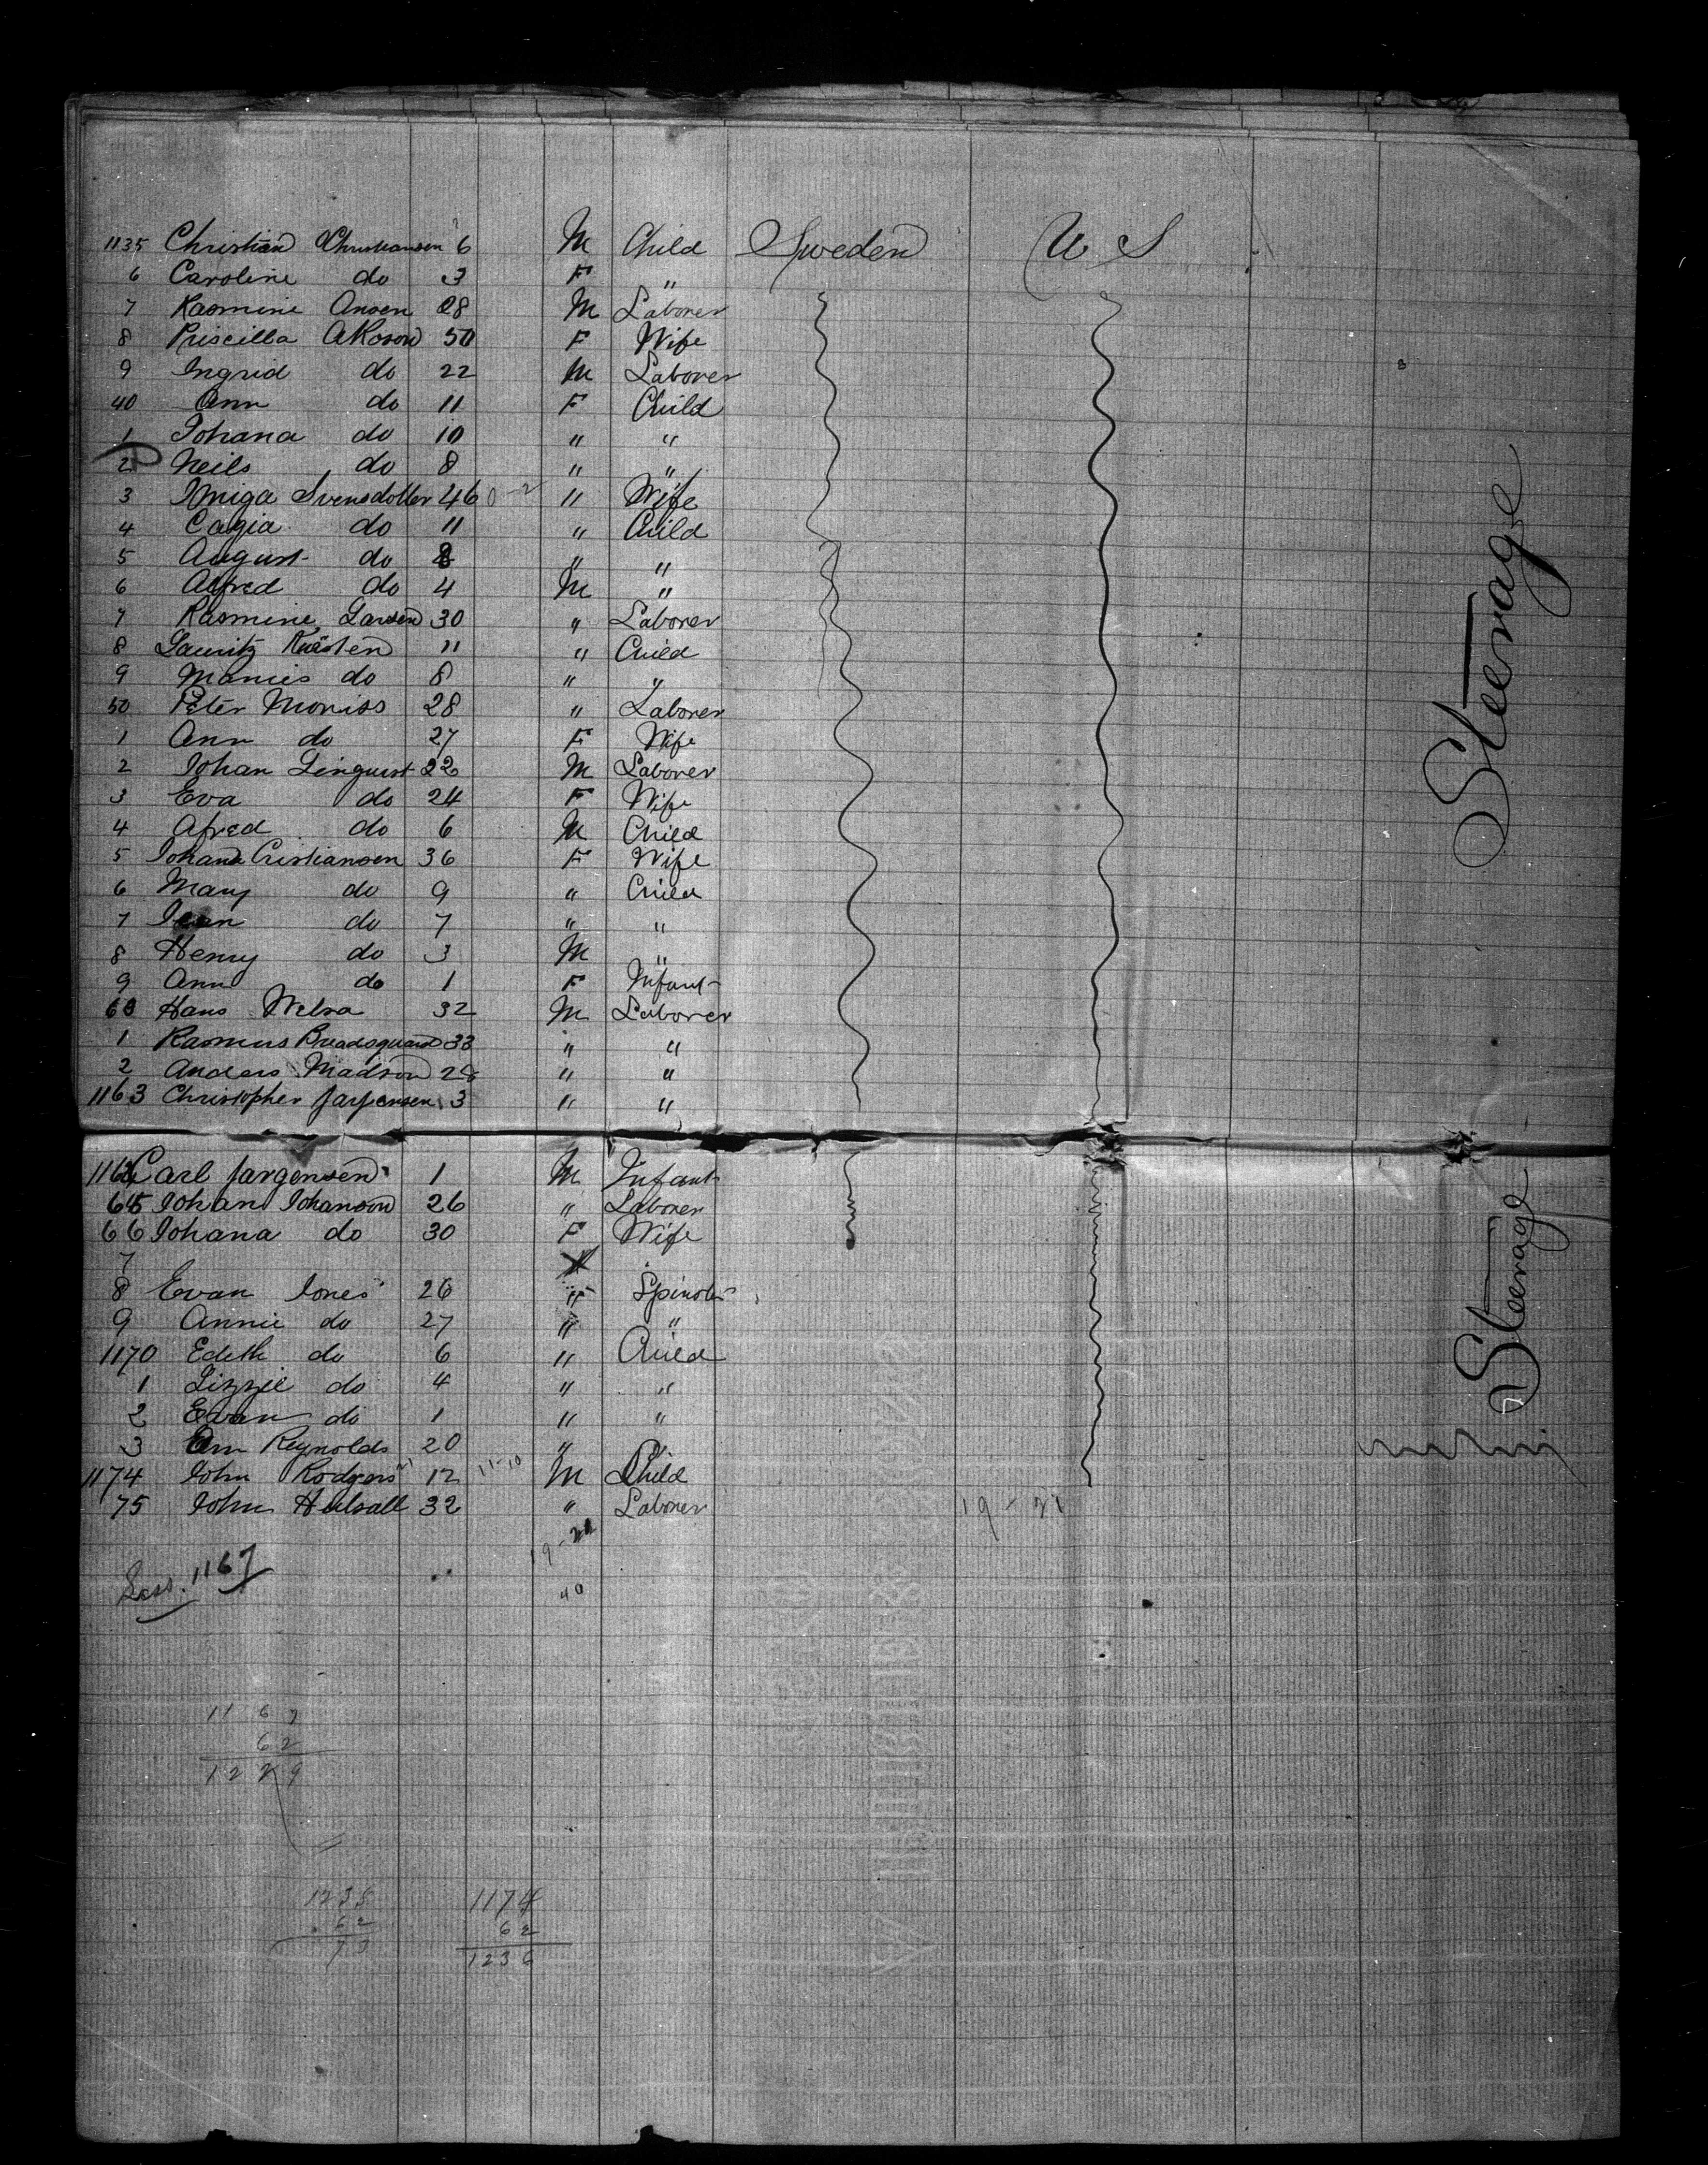 1135 Christian Christiansen 6 M Child Sweden U S
6 Caroline do 3 F "
7 Rasmine Ansen 28 M Laborer
8 Priscilla Akoson 50 F Wife
9 Ingrid do 22 M Laborer
40 Ann do 11 F Child
1 Johana do 10 " "
2 Neils do 8 " "
3 Svensdotter 46 0-2 " Wife
4 Cagia do 11 " Child
5 August do 8 " "
6 Alfred do 4 M "
7 Rasmine Larsen 30 " Laborer
8 Lauritz 11 " Child
9 do 8 " "
50 Peter Moniss 28 " Laborer
1 Ann do 27 F Wife
2 Johan Linquist 22 M Laborer
3 Eva do 24 F Wife
4 Afred do 6 M Child
5 Johana Cristiansen 36 F Wife
6 Mary do 9 " Child
7 do 7 " "
8 Henry do 3 M "
9 Ann do 1 F Infant
60 Hans 32 M Laborer
1 Rasmus 33 " "
2 Anders Madson 28 " "
1163 Christopher Jargensen 3 " "
Steerage
1164 Carl Jargensen 1 M Infant
65 Johan Johanson 26 " Laborer
66 Johana do 30 F Wife
7
8 Evan Jones 26 " Spinster
9 Annie do 27 " "
1170 Edith do 6 " Child
1 Lizzie do 4 " "
2 Evan do 1 " "
3 Ann Reynolds 20 "
1174 John Rodgers 12 11-10 M Child
75 John Hulsall 32 " Laborer 19-21
Steerage
19-21
Less. 1167
40
1167
62
1229
1238 1174
62 62
73 1236